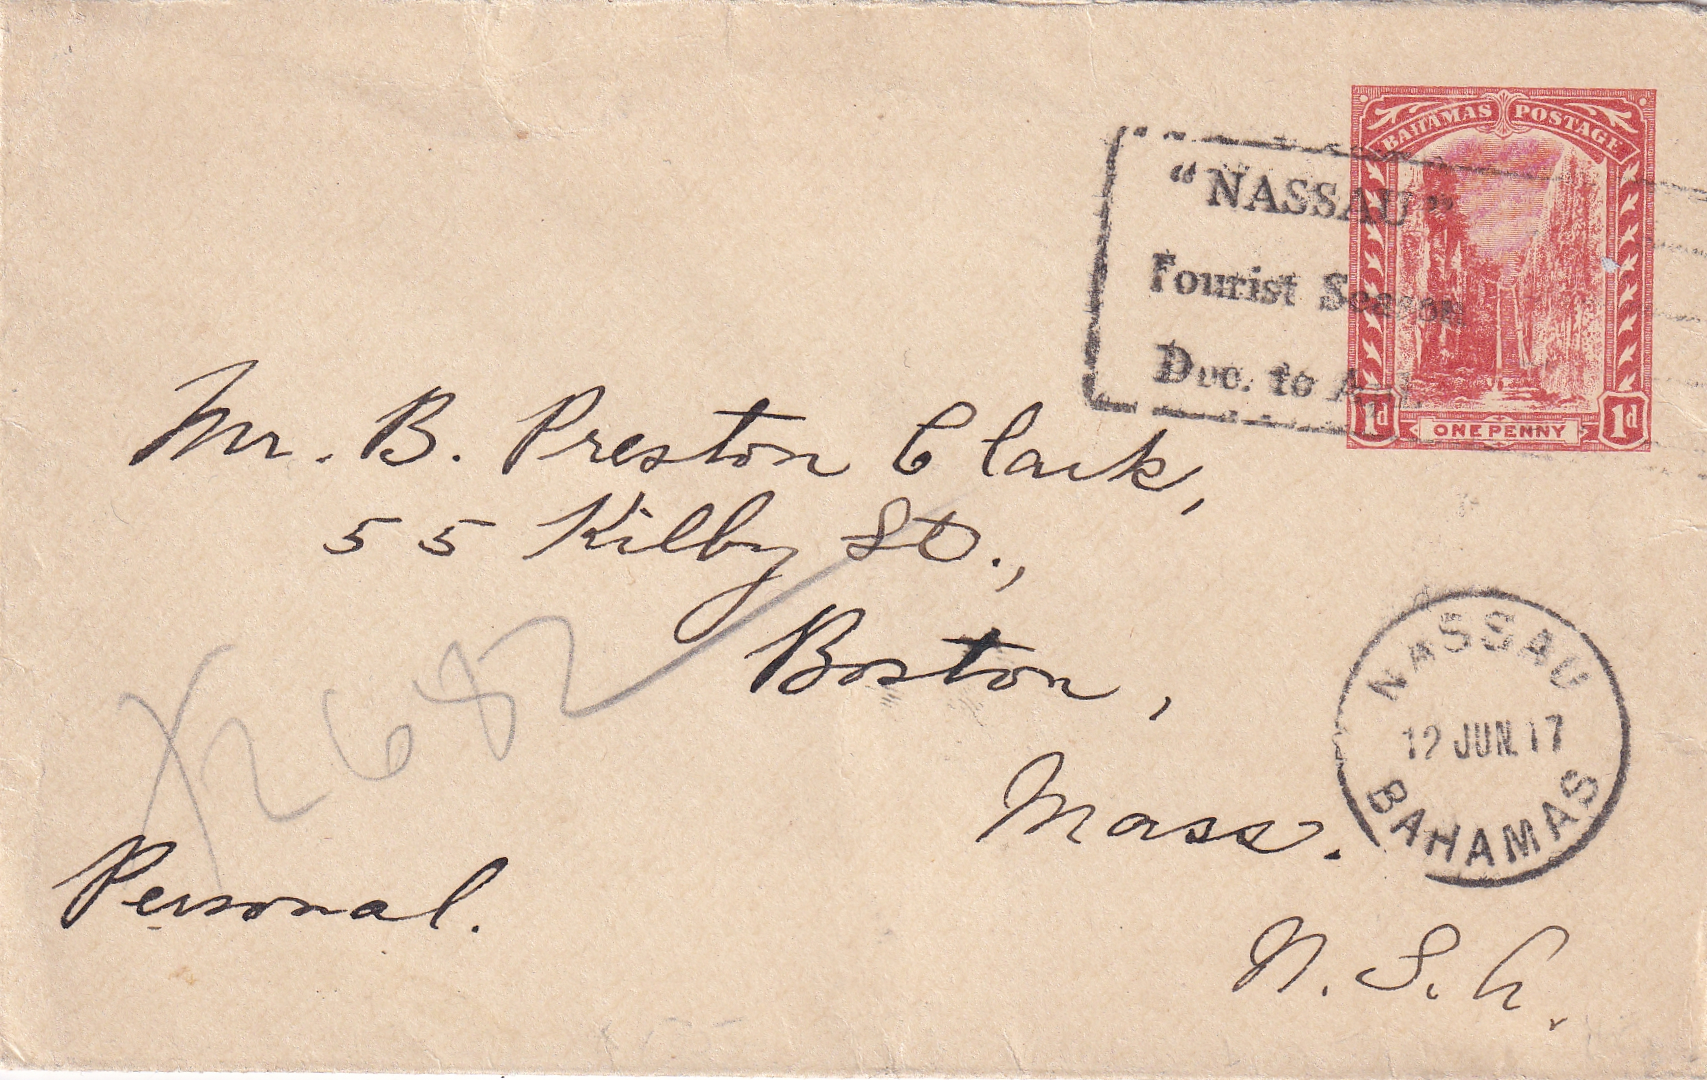 BAHAMAS POSTAGE
"NASSAU"
Tourist Season
Dec. to Apl.
1d ONE PENNY 1d
Mr. B. Preston Clark,
55 Kilby St.,
Boston,
Mass.
U.S.A.
NASSAU
12 JUN. 17
BAHAMAS
2682
Personal.